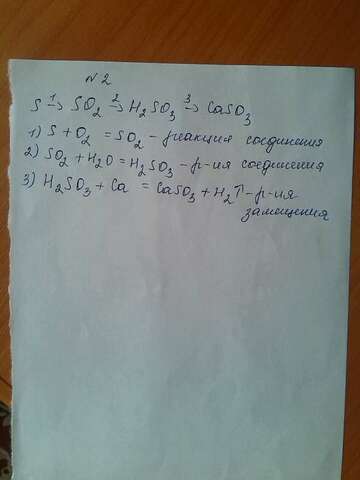 N2
S ¹→ SO₂ ²→ H₂SO₃ ³→ CaSO₃
1) S + O₂ = SO₂ - реакция соединения
2) SO₂ + H₂O = H₂SO₃ - р-ия соединения
3) H₂SO₃ + Ca = CaSO₃ + H₂↑ - р-ия
замещения